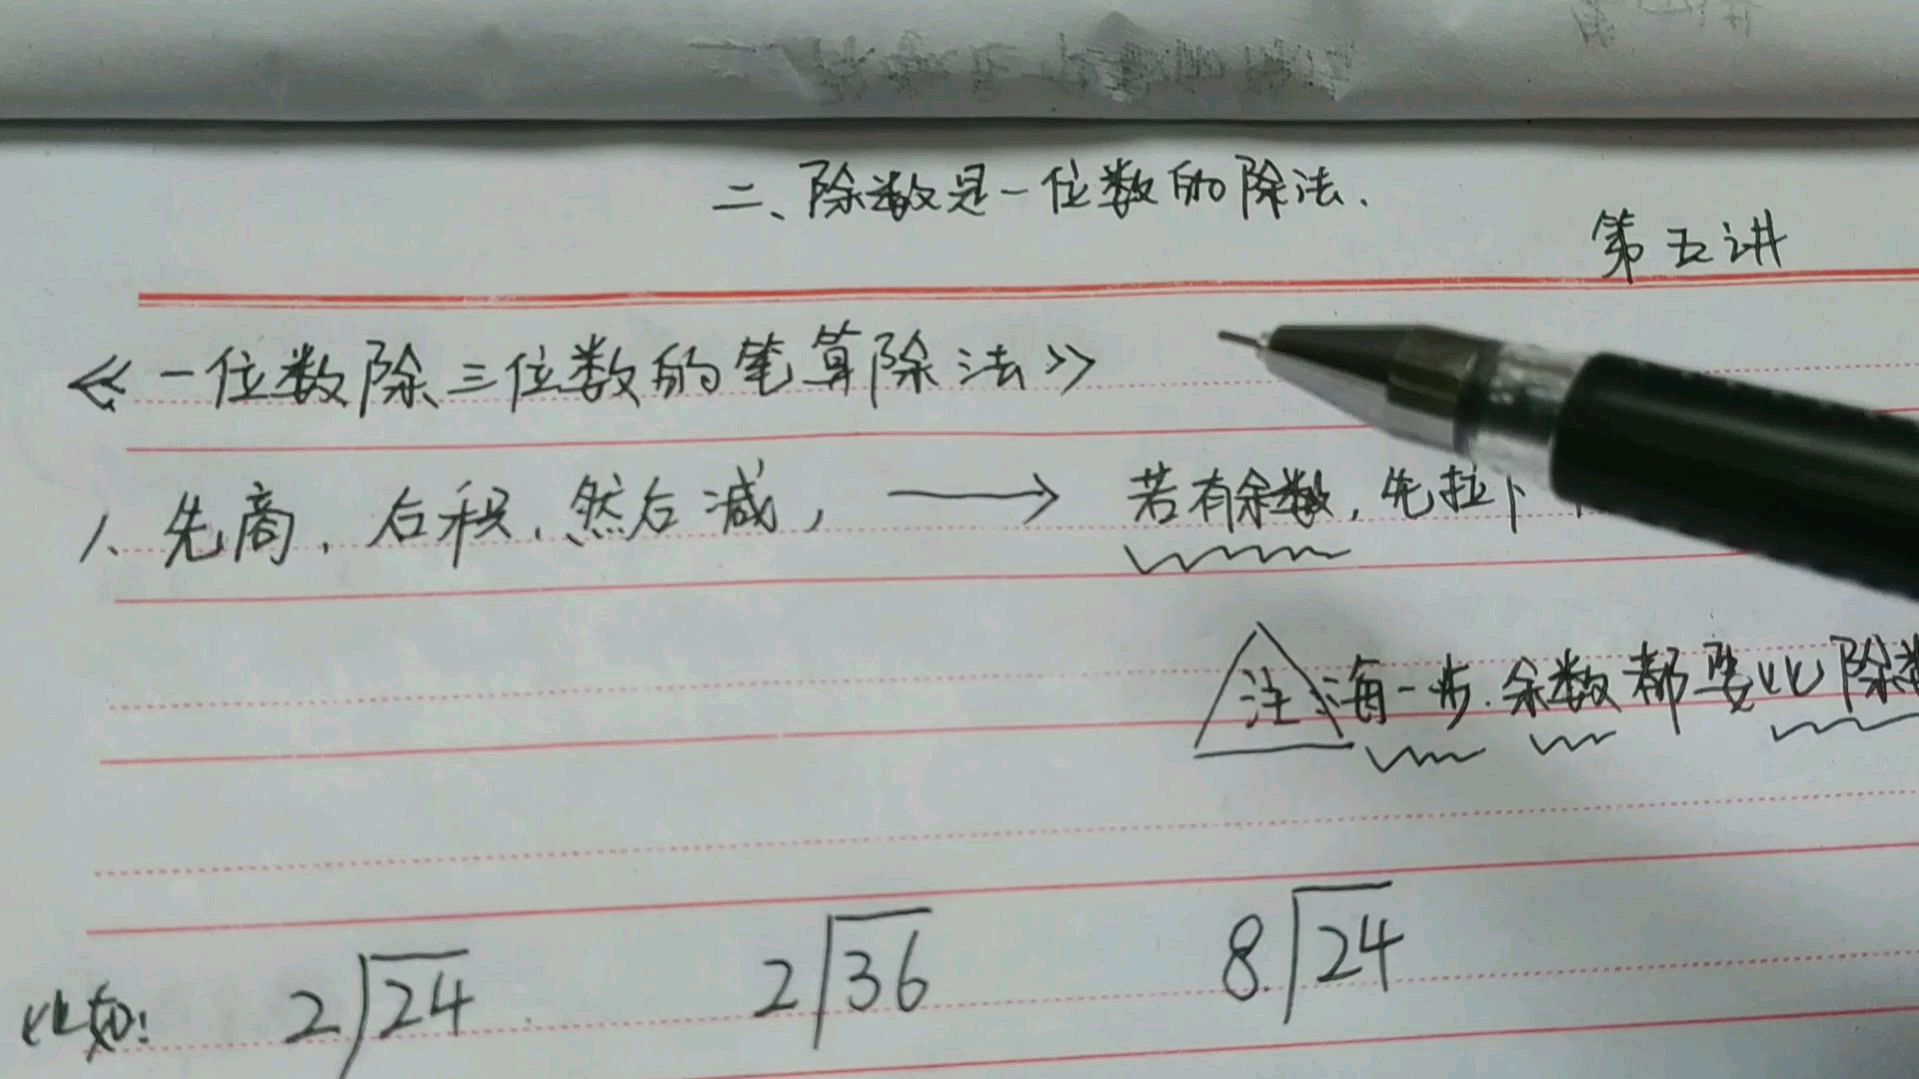 二、除数是一位数的除法.
第五讲
《一位数除三位数的笔算除法》
1、先商,后积,然后减, → 若有余数,先拉下
注:每一步.余数都要比除数
比如: 2⟌24 2⟌36 8⟌24